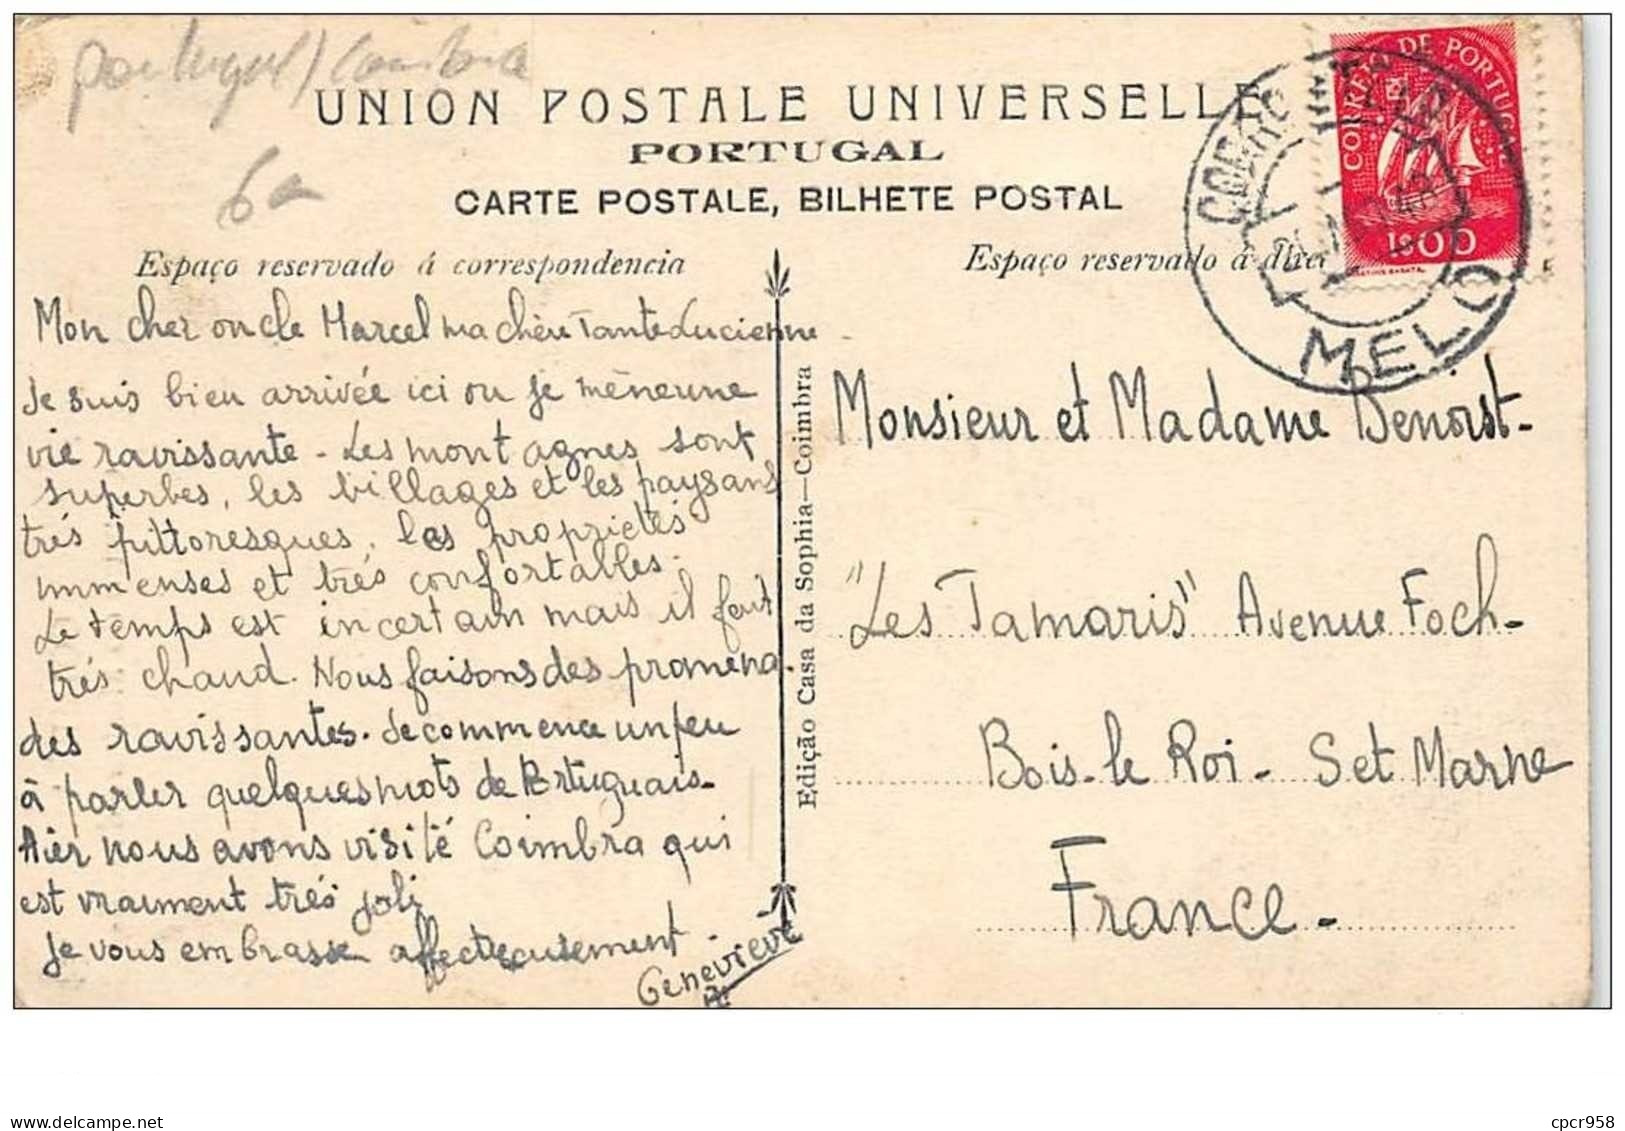 Portugal) Coimbra
6a
UNION POSTALE UNIVERSELLE
PORTUGAL
CARTE POSTALE, BILHETE POSTAL
Espaço reservado á correspondencia
Espaço reservado á direc
CORREIO DE PORTUGAL
1$00
CORREIO
MELO
Mon cher oncle Marcel ma chère Tante Lucienne
Je suis bien arrivée ici ou je mène une
vie ravissante - Les montagnes sont
superbes, les villages et les paysans
trés pittoresques, les proprietés
immenses et trés confortables.
Le temps est incertain mais il fait
trés chaud. Nous faisons des promena-
des ravissantes. Je commence un peu
à parler quelques mots de Portuguais-
Hier nous avons visité Coimbra qui
est vraiment trés joli
Je vous embrasse affectueusement.
Geneviève
Edição Casa da Sophia—Coimbra
Monsieur et Madame Benoist-
"Les Tamaris" Avenue Foch-
Bois-le Roi- S et Marne
France-
delcampe.net
cpcr958